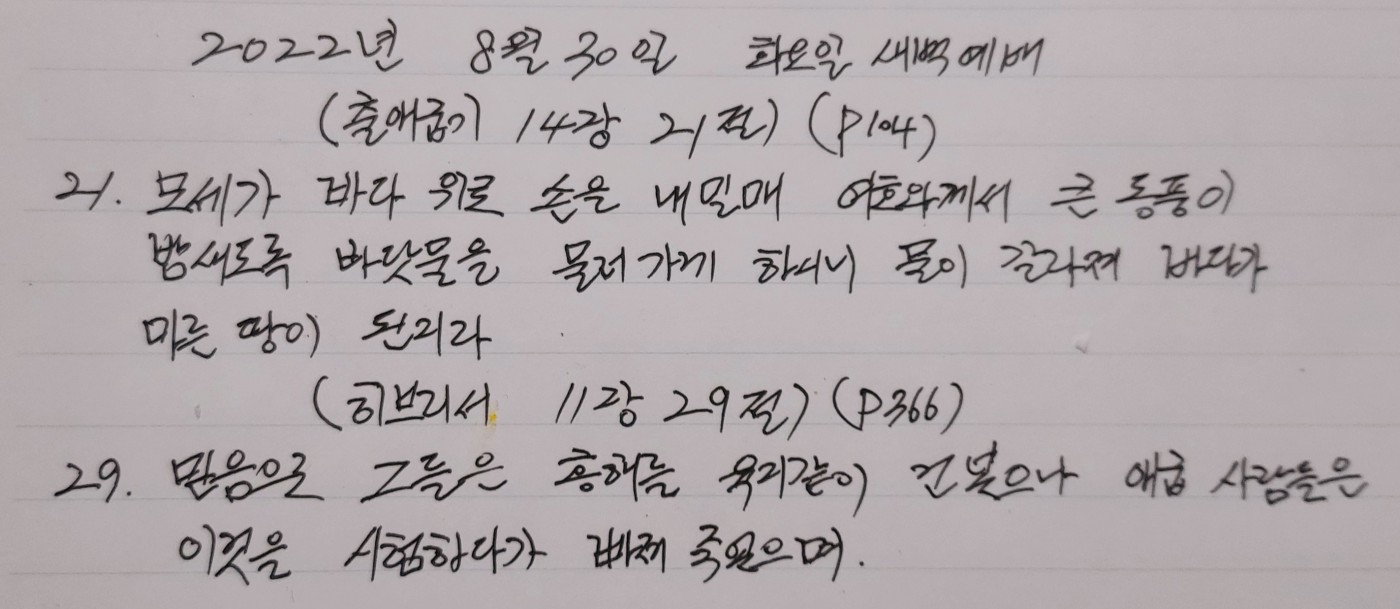 2022년 8월 30일 화요일 새벽예배
(출애굽기 14장 21절) (P104)
21. 모세가 바다 위로 손을 내밀매 여호와께서 큰 동풍이
밤새도록 바닷물을 물러가게 하시니 물이 갈라져 바다가
마른 땅이 된지라
(히브리서 11장 29절) (P366)
29. 믿음으로 그들은 홍해를 육지같이 건넜으나 애굽 사람들은
이것을 시험하다가 빠져 죽었으며.